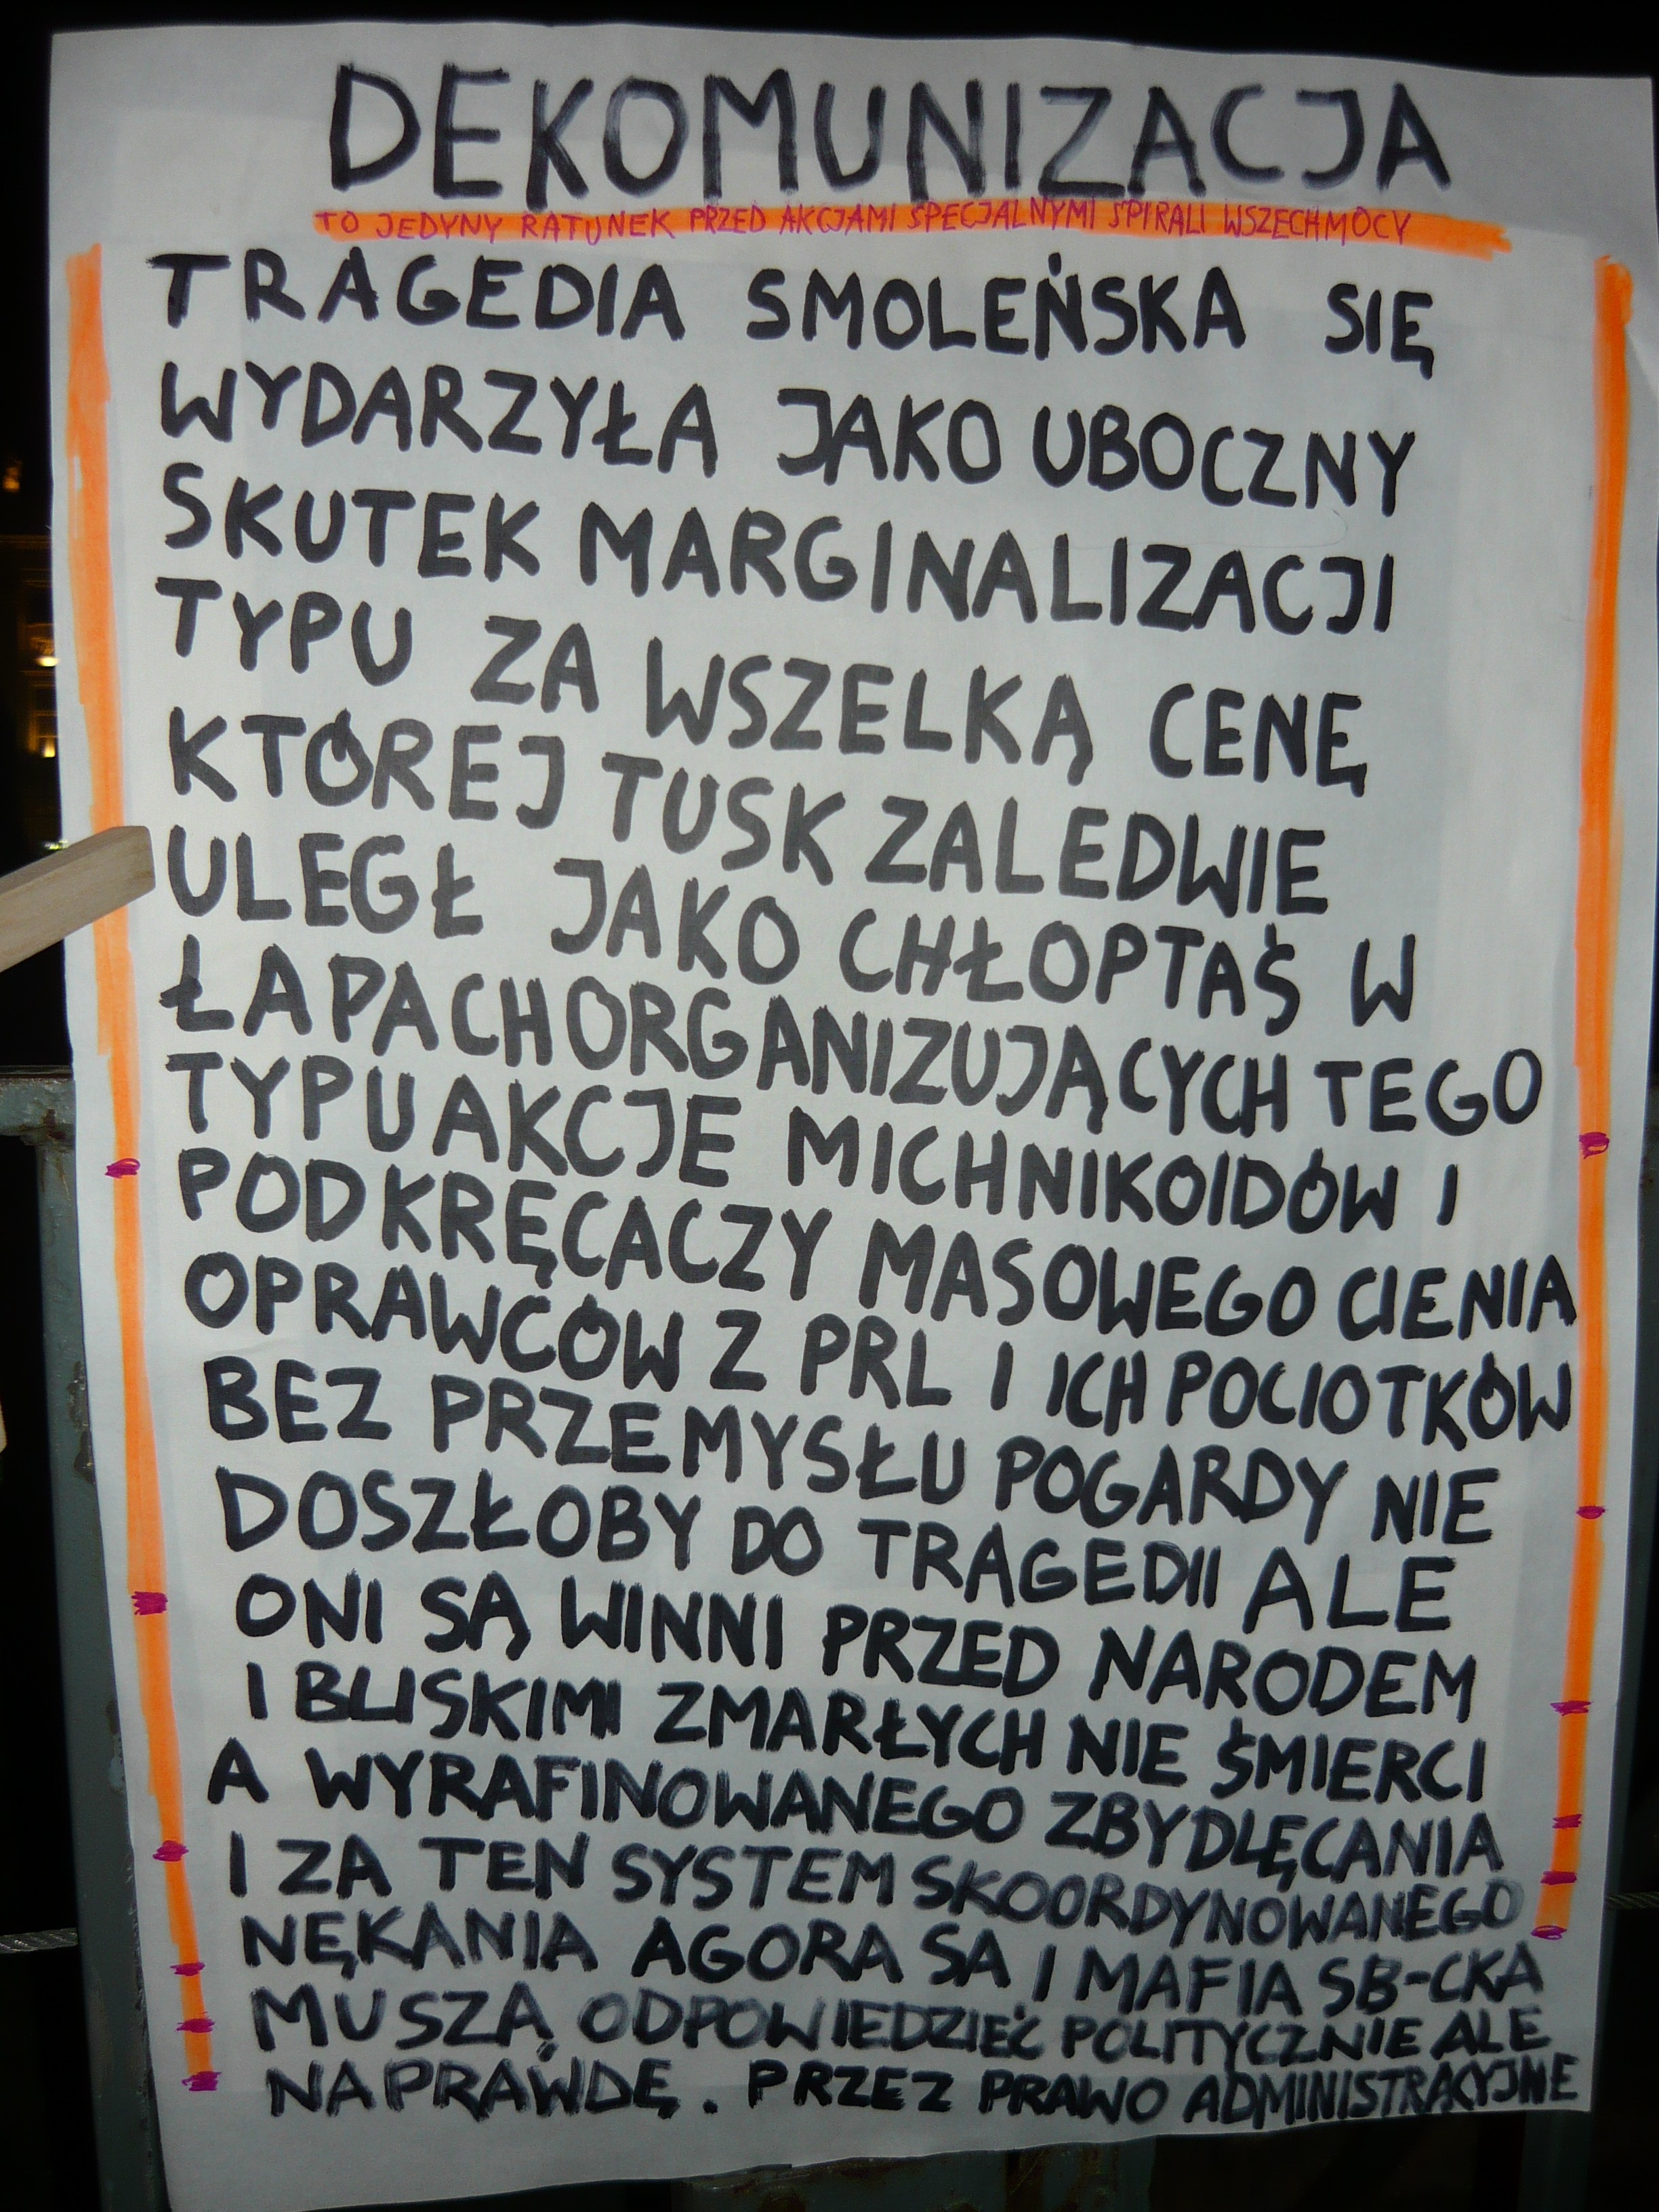 DEKOMUNIZACJA
TO JEDYNY RATUNEK PRZED AKCJAMI SPECJALNYMI SPIRALI WSZECHMOCY
TRAGEDIA SMOLEŃSKA SIĘ
WYDARZYŁA JAKO UBOCZNY
SKUTEK MARGINALIZACJI
TYPU ZA WSZELKĄ CENĘ
KTÓREJ TUSK ZALEDWIE
ULEGŁ JAKO CHŁOPTAŚ W
ŁAPACH ORGANIZUJĄCYCH TEGO
TYPU AKCJE MICHNIKOIDÓW I
PODKRĘCACZY MASOWEGO CIENIA
OPRAWCÓW Z PRL I ICH POCIOTKÓW
BEZ PRZEMYSŁU POGARDY NIE
DOSZŁOBY DO TRAGEDII ALE
ONI SĄ WINNI PRZED NARODEM
I BLISKIMI ZMARŁYCH NIE ŚMIERCI
A WYRAFINOWANEGO ZBYDLĘCANIA
I ZA TEN SYSTEM SKOORDYNOWANEGO
NĘKANIA AGORA SA I MAFIA SB-CKA
MUSZĄ ODPOWIEDZIEĆ POLITYCZNIE ALE
NAPRAWDĘ. PRZEZ PRAWO ADMINISTRACYJNE